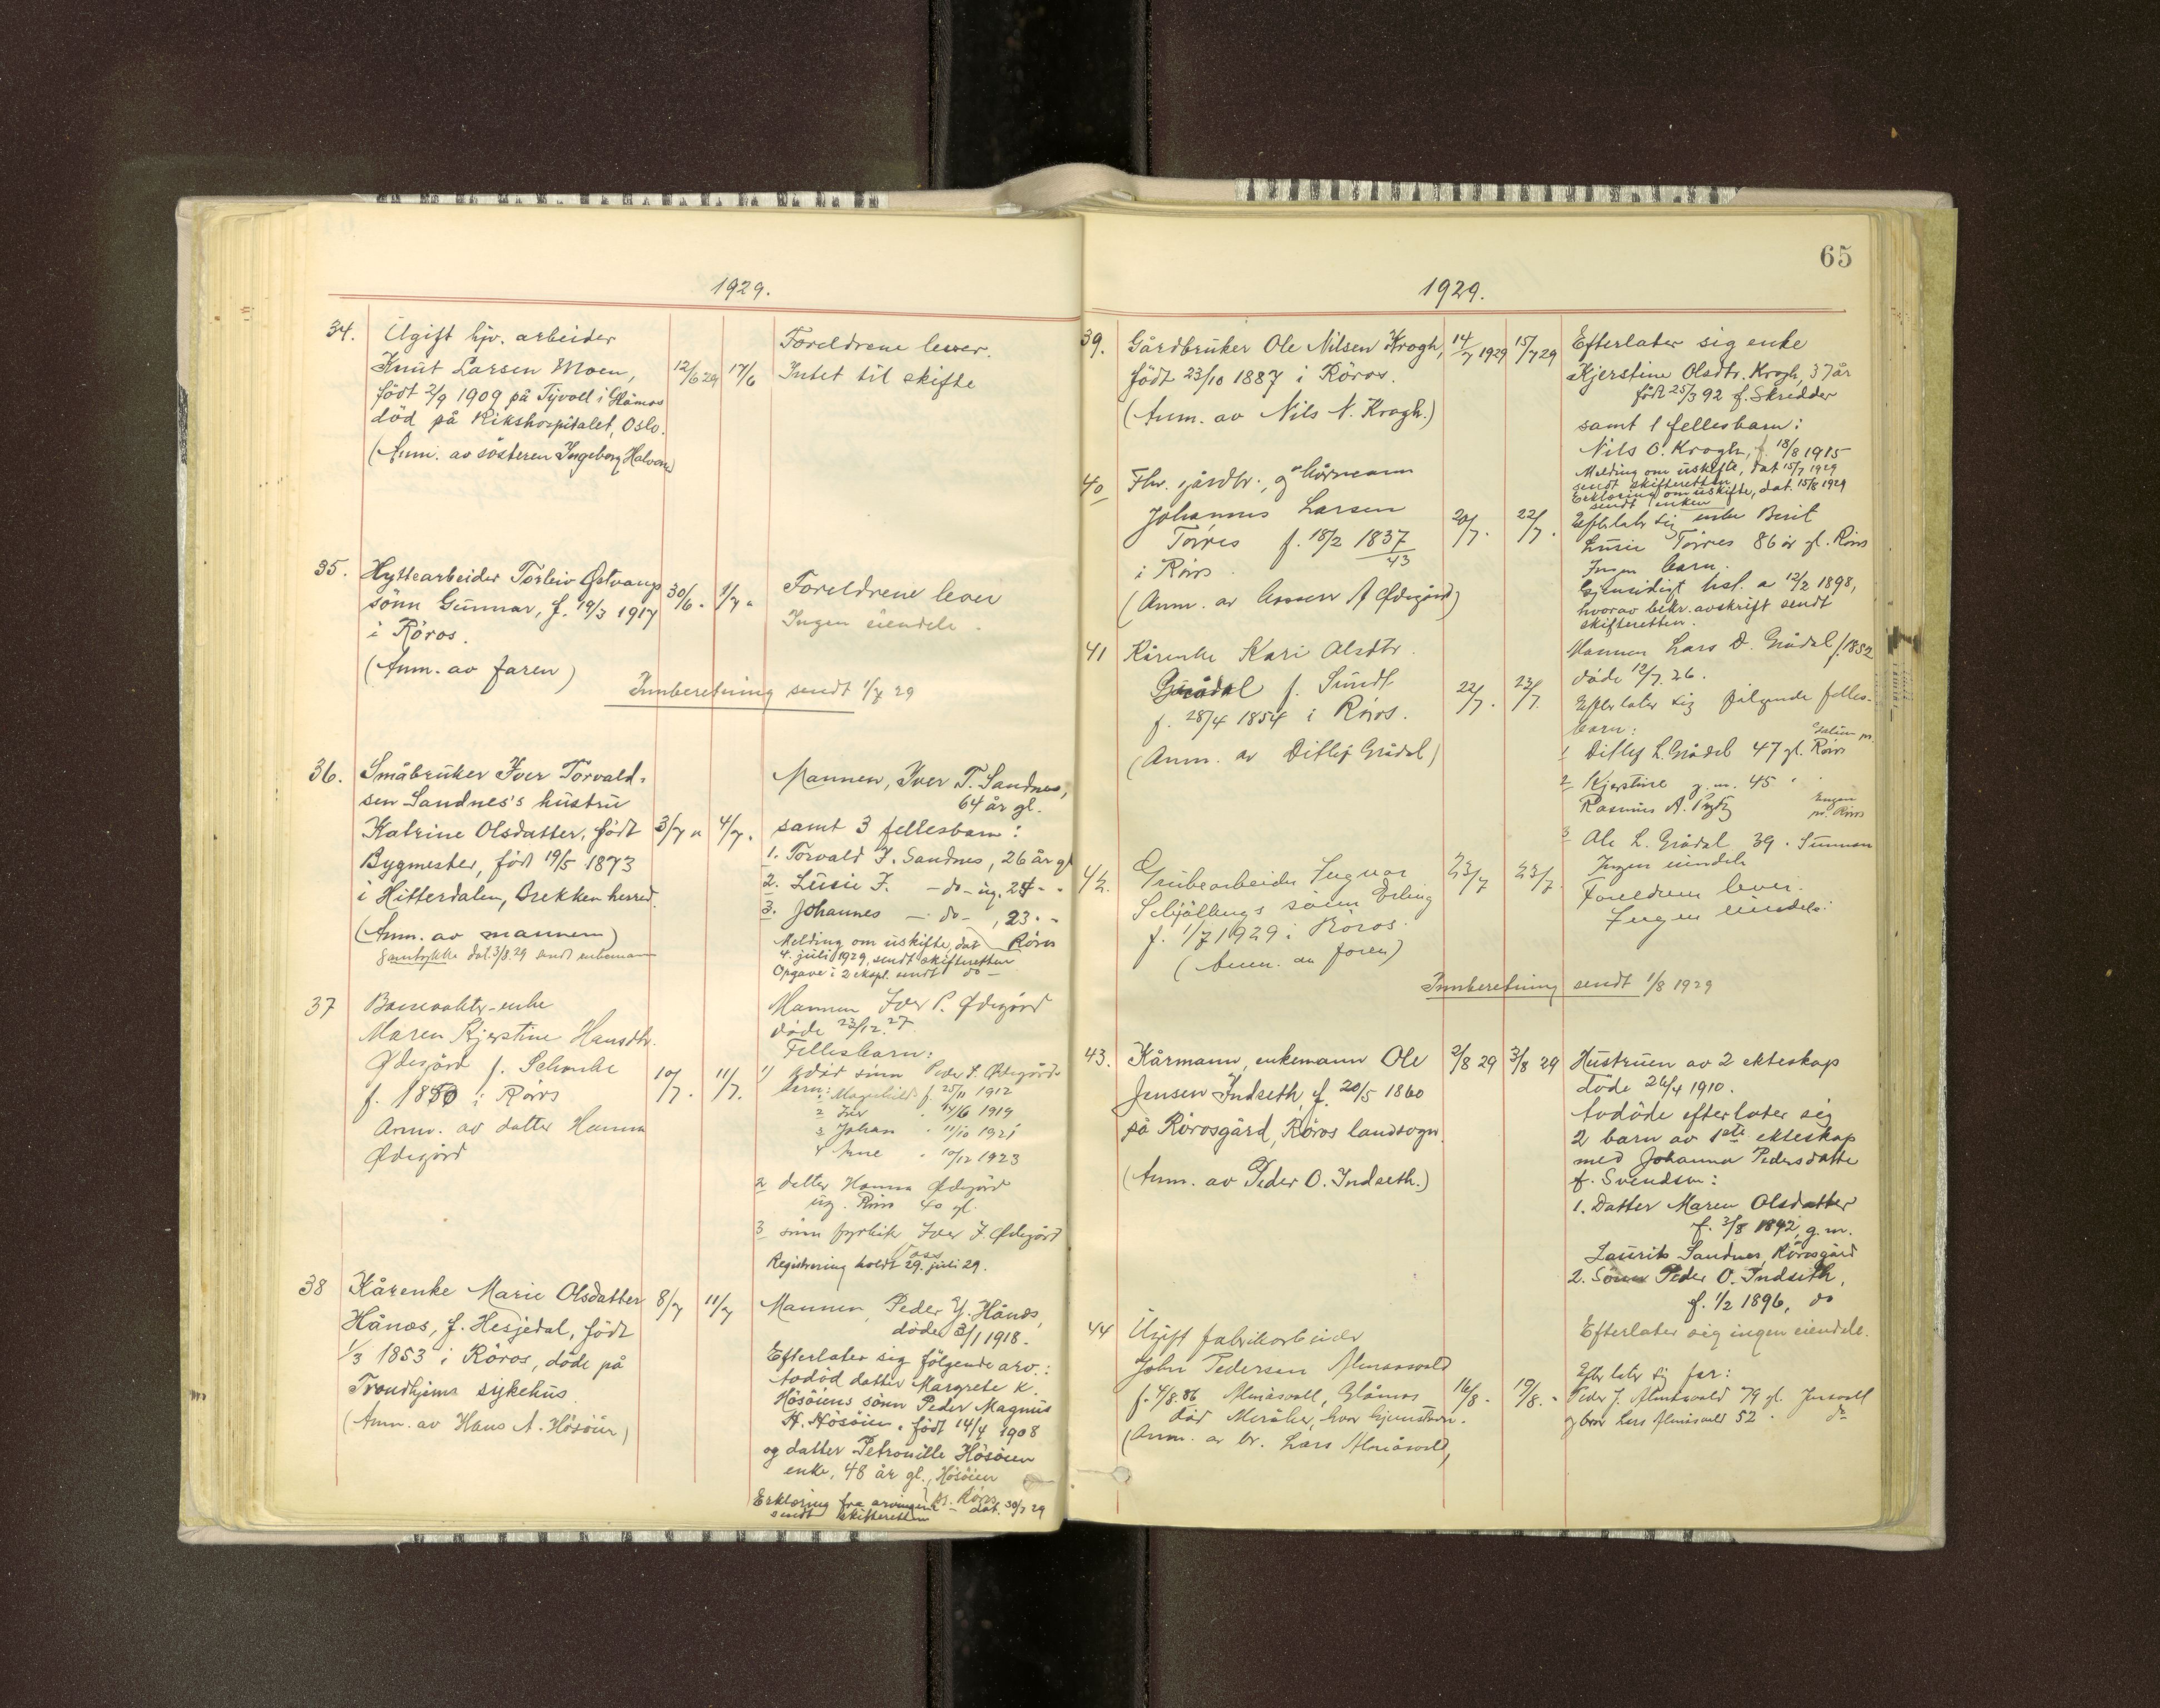 1929.
34. Ugift hjv. arbeider
Knut Larsen Moen,
født 2/9 1909 på Tyvoll i Glåmos
död på Rikshospitalet, Oslo.
(Anm. av søsteren Ingeborg Halvorsen)
12/6 29
17/6
Foreldrene lever.
Intet til skifte
35. Hyttearbeider Torleiv Østvangs
sönn Gunnar, f. 19/3 1917
i Röros.
(Anm. av faren)
30/6 "
1/7 "
Foreldrene lever
Ingen eiendele.
Innberetning sendt 1/7 29
36. Småbruker Iver Torvald-
sen Sandnes's hustru
Katrine Olsdatter, født
Bygmester, född 19/5 1873
i Hitterdalen, Brekken herred.
(Anm. av mannen)
Samtykke dat. 3/8 29 sendt enkemann
3/7 "
4/7 "
Mannen, Iver T. Sandnes,
64 år gl.
samt 3 fellesbarn:
1. Torvald I. Sandnes, 26 år gl
2. Lusie I. - do - ug. 24 - -
3. Johannes - do - , 23 - -
Röros
Melding om uskifte, dat
4. juli 1929, sendt skifteretten
Opgave i 2 ekspl. sendt do -
37 enke
Maren Kjerstine Hansdtr.
Ødegård f. Schanke
f. 1850 i Röros
Anm. av datter Hanna
Ødegård
10/7.
11/7.
Mannen Iver P. Ødegård
döde 23/12 27.
Fellesbarn:
1) död sönn Peder I. Ødegårds
barn: 1 Magnhild f. 25/11 1912
2 Iver " 14/6 1919
3 Johan " 11/10 1921
4 Arne " 10/12 1923
2 datter Hanna Ødegård
ug. Röros 40 gl.
3 sönn Iver I. Ødegård
Voss
Registrering holdt 29. juli 29.
38 Kårenke Marie Olsdatter
Hånæs, f. Hesjedal, född
1/3 1853 i Röros, döde på
Trondhjems sykehus
(Anm. av Hans A. Hösöien)
8/7
11/7
Mannen Peder Y. Hånæs,
döde 3/1 1918.
Efterlater sig følgende arv.:
Avdöd datter Margrete K.
Hösöiens sönn Peder Magnus
H. Hösöien, født 14/4 1908
og datter Petronille Hösöien
enke, 48 år gl., Hösöien
pr. Röros
Erklæring fra arvingene dat. 30/7 29
sendt skifteretten
65
1929.
39. Gårdbruker Ole Nilsen Krogh,
född 23/10 1887 i Röros.
(Anm. av Nils N. Krogh.)
14/7 1929
15/7 29
Efterlater sig enke
Kjerstine Olsdtr. Krogh, 37 år
född 25/3 92 f. Skredder
samt 1 fellesbarn:
Nils O. Krogh, f. 18/8 1915
Melding om uskifte, dat 15/7 1929
sendt skifteretten
Erklæring om uskifte, dat. 15/8 1929
sendt enken
40 Fhv. gårdbr., og kårmann
Johannes Larsen
Torres f. 18/2 1837
43
i Röros
(Anm. av A Ødegård)
20/7.
22/7.
Efterlater sig enke Berit
Lusie Torres 86 år gl. Röros
Ingen barn.
Gjensidigt test. a 12/2 1898,
hvorav bekr. avskrift sendt
skifteretten.
41 Kårenke Kari Olsdtr.
Grådal f. Sundt
f. 28/4 1854 i Röros.
(Anm. av Ditlef Grådal)
22/7.
23/7.
Mannen Lars D. Grådal f. 1852
döde 12/7 26.
Efterlater sig følgende felles-
barn:
1 Ditlef L. Grådal 47 gl. Röros
2 Kjerstine g. m. 45 " "
Rasmus A.
pr. Röros
3 Ole L. Grådal 39 "
Ingen eiendele
42. Grubearbeider Ingvar
Schjöllbergs sönn Erling
f. 1/7 1929 i Röros.
(Anm. av faren)
23/7
23/7.
Foreldrene lever.
Ingen eiendele.
Innberetning sendt 1/8 1929
43. Kårmann, enkemann Ole
Jensen Indseth, f. 20/5 1860
på Rörosgård, Röros landsogn.
(Anm. av Peder O. Indseth.)
2/8 29
3/8 29
Hustruen av 2 ekteskap
döde 26/4 1910.
Avdöde efterlater sig
2 barn av 1ste ekteskap
med Johanna Pedersdatter
f. Svendsen:
1. Datter Maren Olsdatter
f. 3/8 1892, g. m.
Laurits Sandnes, Rörosgård
2. Sönn Peder O. Indseth,
f. 1/2 1896, do
Efterlater sig ingen eiendele.
44 Ugift fabrikarbeider
John Pedersen Almåsvold
f. 4/8.86 Almåsvoll, Glåmos
död Meråker, hvor hjemstavn.
(Anm. av br. Lars Almåsvold)
16/8.
19/8.
Efterlater sig far:
Peder J. Almåsvold 79 gl. Jensvoll
og bror Lars Almåsvold 52 " do